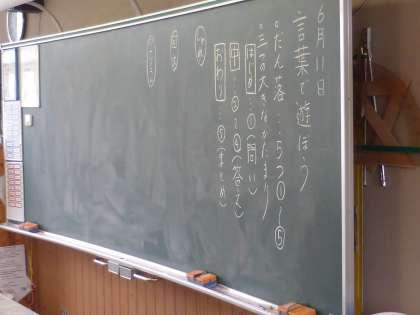 6月11日
言葉で遊ぼう
・だん落…5つ①〜⑤
・三つの大きなかたまり
はじめ…①(問い)
中…②〜④(答え)
おわり…⑤(まとめ)